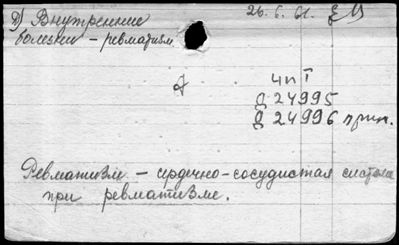 д) Внутренние 26.6.61.
болезни – ревматизм
4п I
Д 24995
Д 24996 прил.
Ревматизм – сердечно-сосудистая система
при ревматизме.